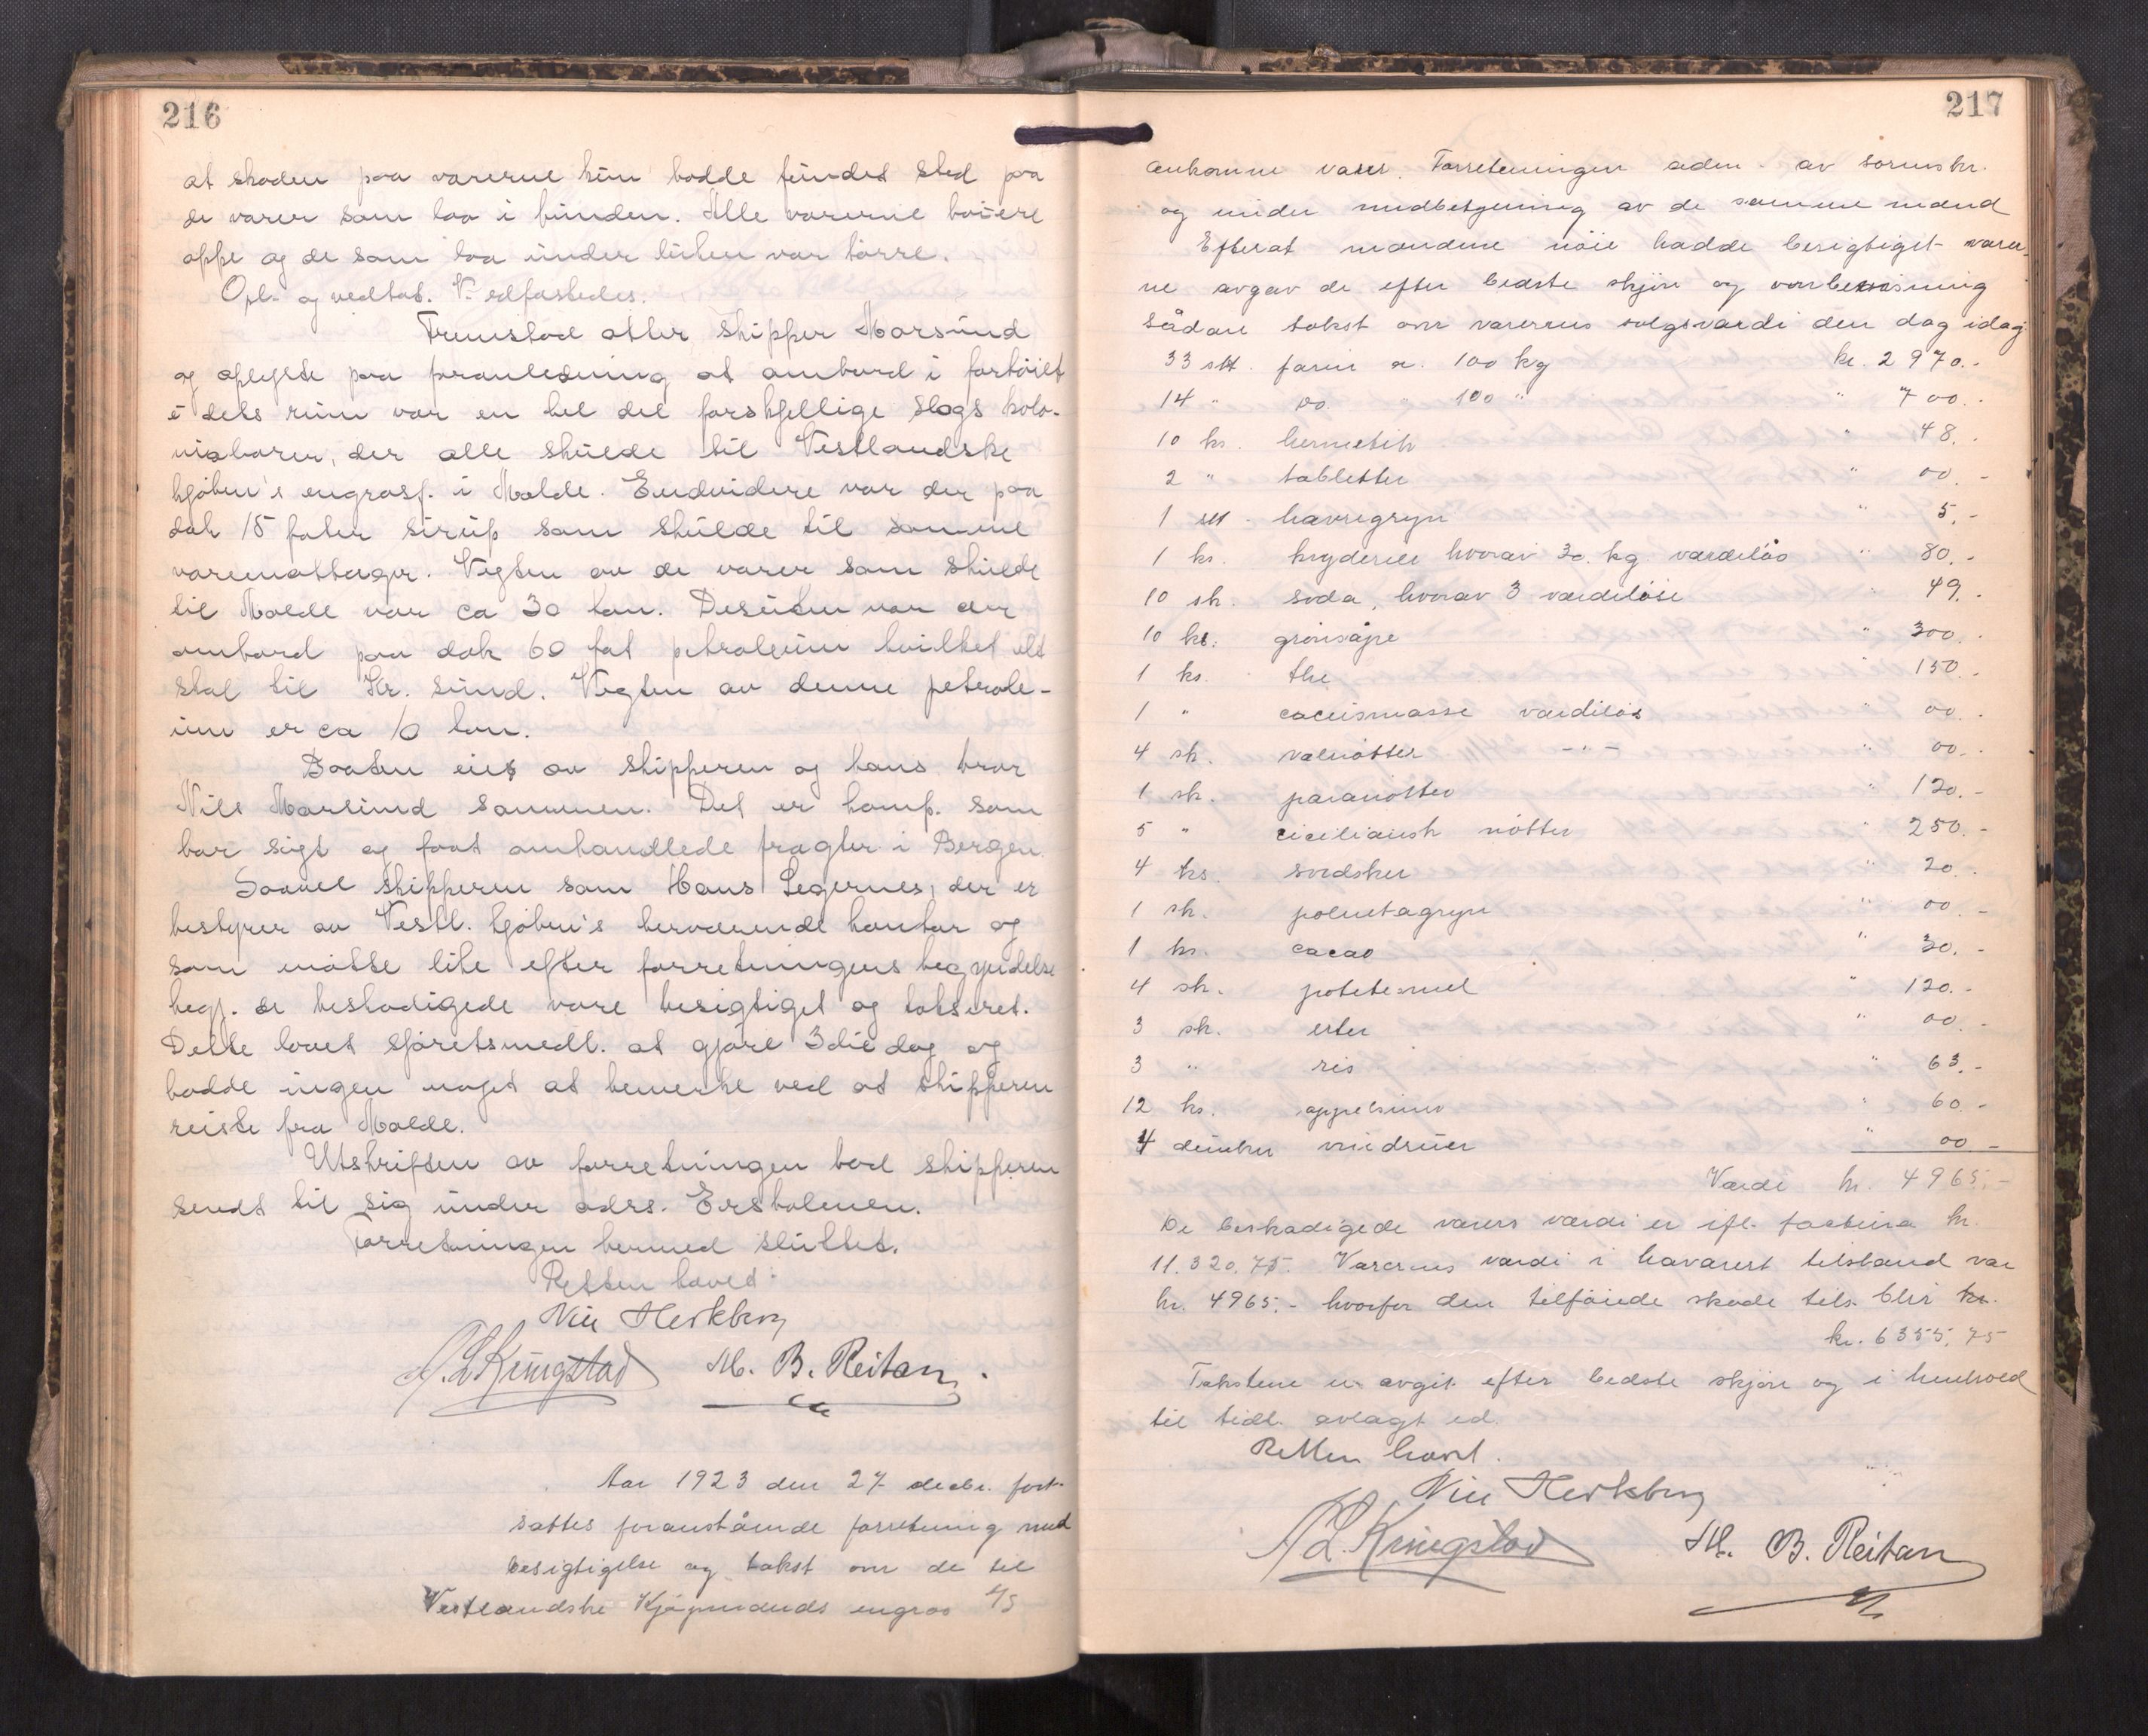 216
at skaden paa varerne kun hadde fundet sted paa
de varer som laa i bunden. Alle varerne høiere
oppe og de som laa under luken var tørre.
Opl. og vedtat. V. edfæstedes.
Fremstod atter skipper Harsund
og oplyste paa foranledning at ombord i fartøiet
i dets rum var en hel del forskjellige slags kolo-
nialvarer, der alle skulde til Vestlandske
kjøbm's engrosf. i Molde. Endvidere var der paa
dæk 15 fater sirup som skulde til samme
varemottager. Vegten av de varer som skulde
til Molde var ca 30 ton. Desuten var der
ombord paa dæk 60 fat petroleum hvilket alt
skal til Kr. sund. Vegten av denne petrole-
um er ca 10 ton.
Baaten eies av skipperen og hans bror
Nils Harsund sammen. Det er komp. som
har sügt og faat omhandlede fragter i Bergen.
Saavel skipperen som Hans Legernes, der er
bestyrer av Vestl. kjøbm's herværende kontor og
som møtte like efter forretningens begyndelse
begj. de beskadigede vare besigtiget og takseret.
Dette lovet sjøretsmedl. at gjøre 3die dag og
hadde ingen noget at bemerke ved at skipperen
reiste fra Molde.
Utskriften av forretningen bad skipperen
sendt til sig under adrs. Ersholmen.
Forretningen hermed sluttet.
Retten hævet
A. L. Kringstad M. B. Reitan.
Aar 1923 den 27 decbr. fort-
sattes foranstående forretning med
besigtigelse og takst over de til
Vestlandske Kjøpmænds engros A/S
217
ankomne varer. Forretningen adm. av sorenskr.
og under medbetjening av de samme mænd
Efterat mændene nøie hadde besigtiget varer-
ne avgav de efter bedste skjøn og overbevisning
sådan takst over varernes salgsværdi den dag idag
33 skk. farin a. 100 kg kr. 2970.-
14 " Do. " 100 " " 700.-
10 ks. hermetik " 48.-
2 " tabletter " 00.-
1 sk. havregryn " 5.-
1 ks. kryderier hvorav 30 kg værdiløs " 80.-
10 sk. soda, hvorav 3 værdiløse " 49.-
10 ks. grønsåpe " 300.-
1 ks. the " 150.-
1 " cacaomasse værdiløs " 00.-
4 sk. valnøtter -"- " 00.-
1 sk. paranøtter " 120.-
5 " ciciliansk nøtter " 250.-
4 ks. svedsker " 20.-
1 sk. polentagryn " 00.-
1 ks. cacao " 30.-
4 sk. potetesmel " 120.-
3 sk. erter " 00.-
3 " ris " 63.-
12 ks. appelsiner " 60.-
4 dunker vindruer " 00-
Værdi kr. 4965.-
De beskadigede varers værdi er ifl. factura kr.
11.320,75. Varernes værdi i havarert tilstand var
kr. 4965.- hvorfor den tilføiede skade tils. blir kr.
kr. 6355,75
Taksten er avgit efter bedste skjøn og i henhold
til tidl. avlagt ed.
Retten hævet.
A L. Kringstad M. B. Reitan